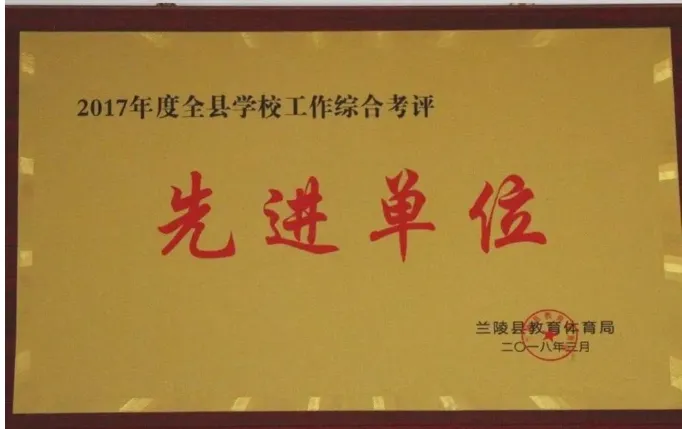 2017年度全县学校工作综合考评
先进单位
兰陵县教育体育局
二〇一八年三月